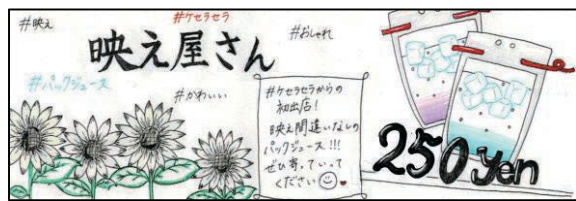 #映え
#ケセラセラ
#おしゃれ
映え屋さん
#パックジュース
#かわいい
#ケセラセラからの
初出店!
映え間違いなしの
パックジュース!!!
ぜひ寄っていって
ください
250yen